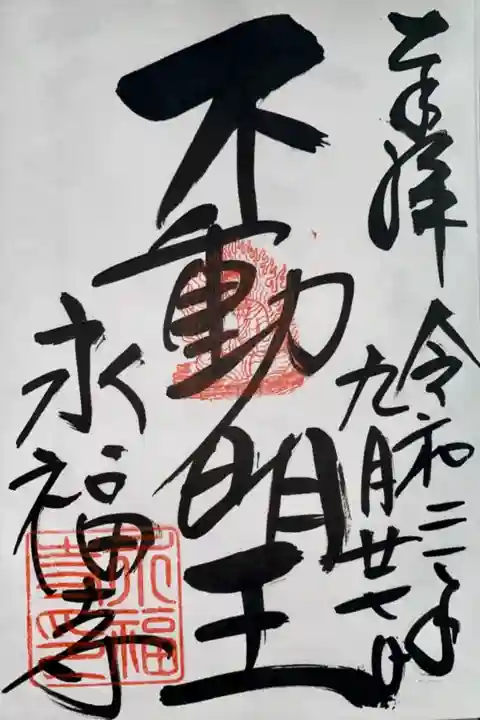 奉拝
令和三年
九月廿七日
不動明王
永福寺
永福